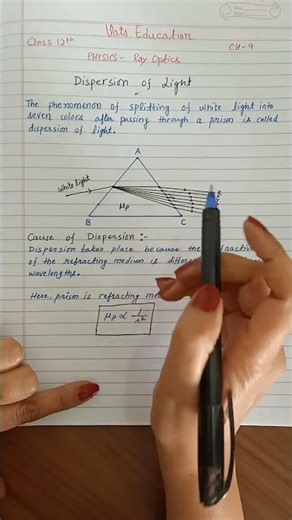 Vats Education
Class 12th
CH-9
PHYSICS- Ray Optics
Dispersion of Light
The phenomenon of splitting of white light into
seven colors after passing through a prism is called
dispersion of light.
A
white light
μp
B
C
Cause of Dispersion :-
Dispersion takes place because the
of the refracting medium is
wavelengths.
Here, prism is refracting
μp ∝ 1/λ²